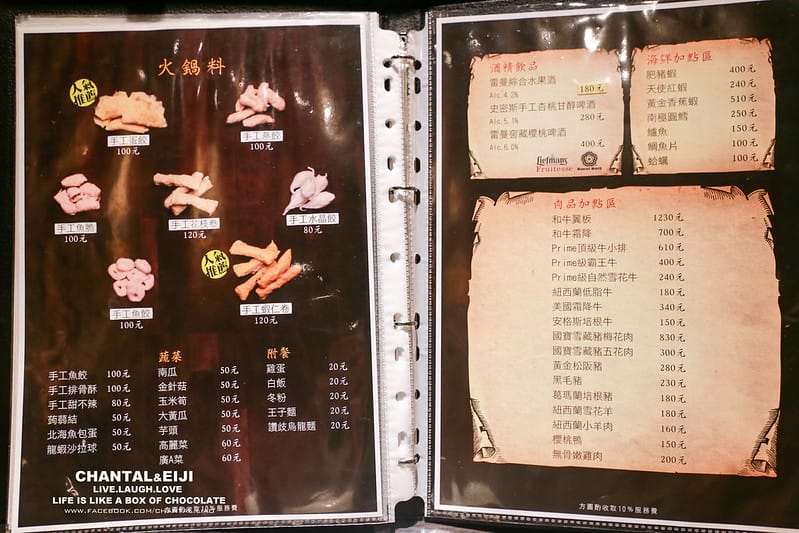 火鍋料
人氣推薦
手工蛋餃
100元
手工燕餃
100元
手工魚脆
100元
手工花枝卷
120元
手工水晶餃
80元
人氣推薦
手工魚餃
100元
手工蝦仁卷
120元
手工魚餃 100元
手工排骨酥 100元
手工甜不辣 80元
蒟蒻結 50元
北海魚包蛋 50元
龍蝦沙拉球 50元
蔬菜
南瓜 50元
金針菇 50元
玉米筍 50元
大黃瓜 50元
芋頭 50元
高麗菜 60元
廣A菜 60元
附餐
雞蛋 20元
白飯 20元
冬粉 20元
王子麵 20元
讚歧烏龍麵 20元
CHANTAL&EIJI
LIVE.LAUGH.LOVE
LIFE IS LIKE A BOX OF CHOCOLATE
WWW.FACEBOOK.COM/CH
酒精飲品
雷曼綜合水果酒
Alc.4.2% 180元
史密斯手工杏桃甘醇啤酒
Alc.5.1% 280元
雷曼窖藏櫻桃啤酒
Alc.6.0% 400元
Liefmans
Fruitesse
海鮮加點區
肥豬蝦 400元
天使紅蝦 240元
黃金香蕉蝦 510元
南極圓鱈 250元
鱸魚 150元
鯛魚片 100元
蛤蠣 100元
肉品加點區
和牛翼板 1230元
和牛霜降 700元
Prime頂級牛小排 610元
Prime級霸王牛 400元
Prime級自然雪花牛 240元
紐西蘭低脂牛 180元
美國霜降牛 340元
安格斯培根牛 150元
國寶雪藏豬梅花肉 830元
國寶雪藏豬五花肉 300元
黃金松阪豬 280元
黑毛豬 230元
葛瑪蘭培根豬 180元
紐西蘭雪花羊 180元
紐西蘭小羊肉 160元
櫻桃鴨 150元
無骨嫩雞肉 200元
方圓酌收取10%服務費